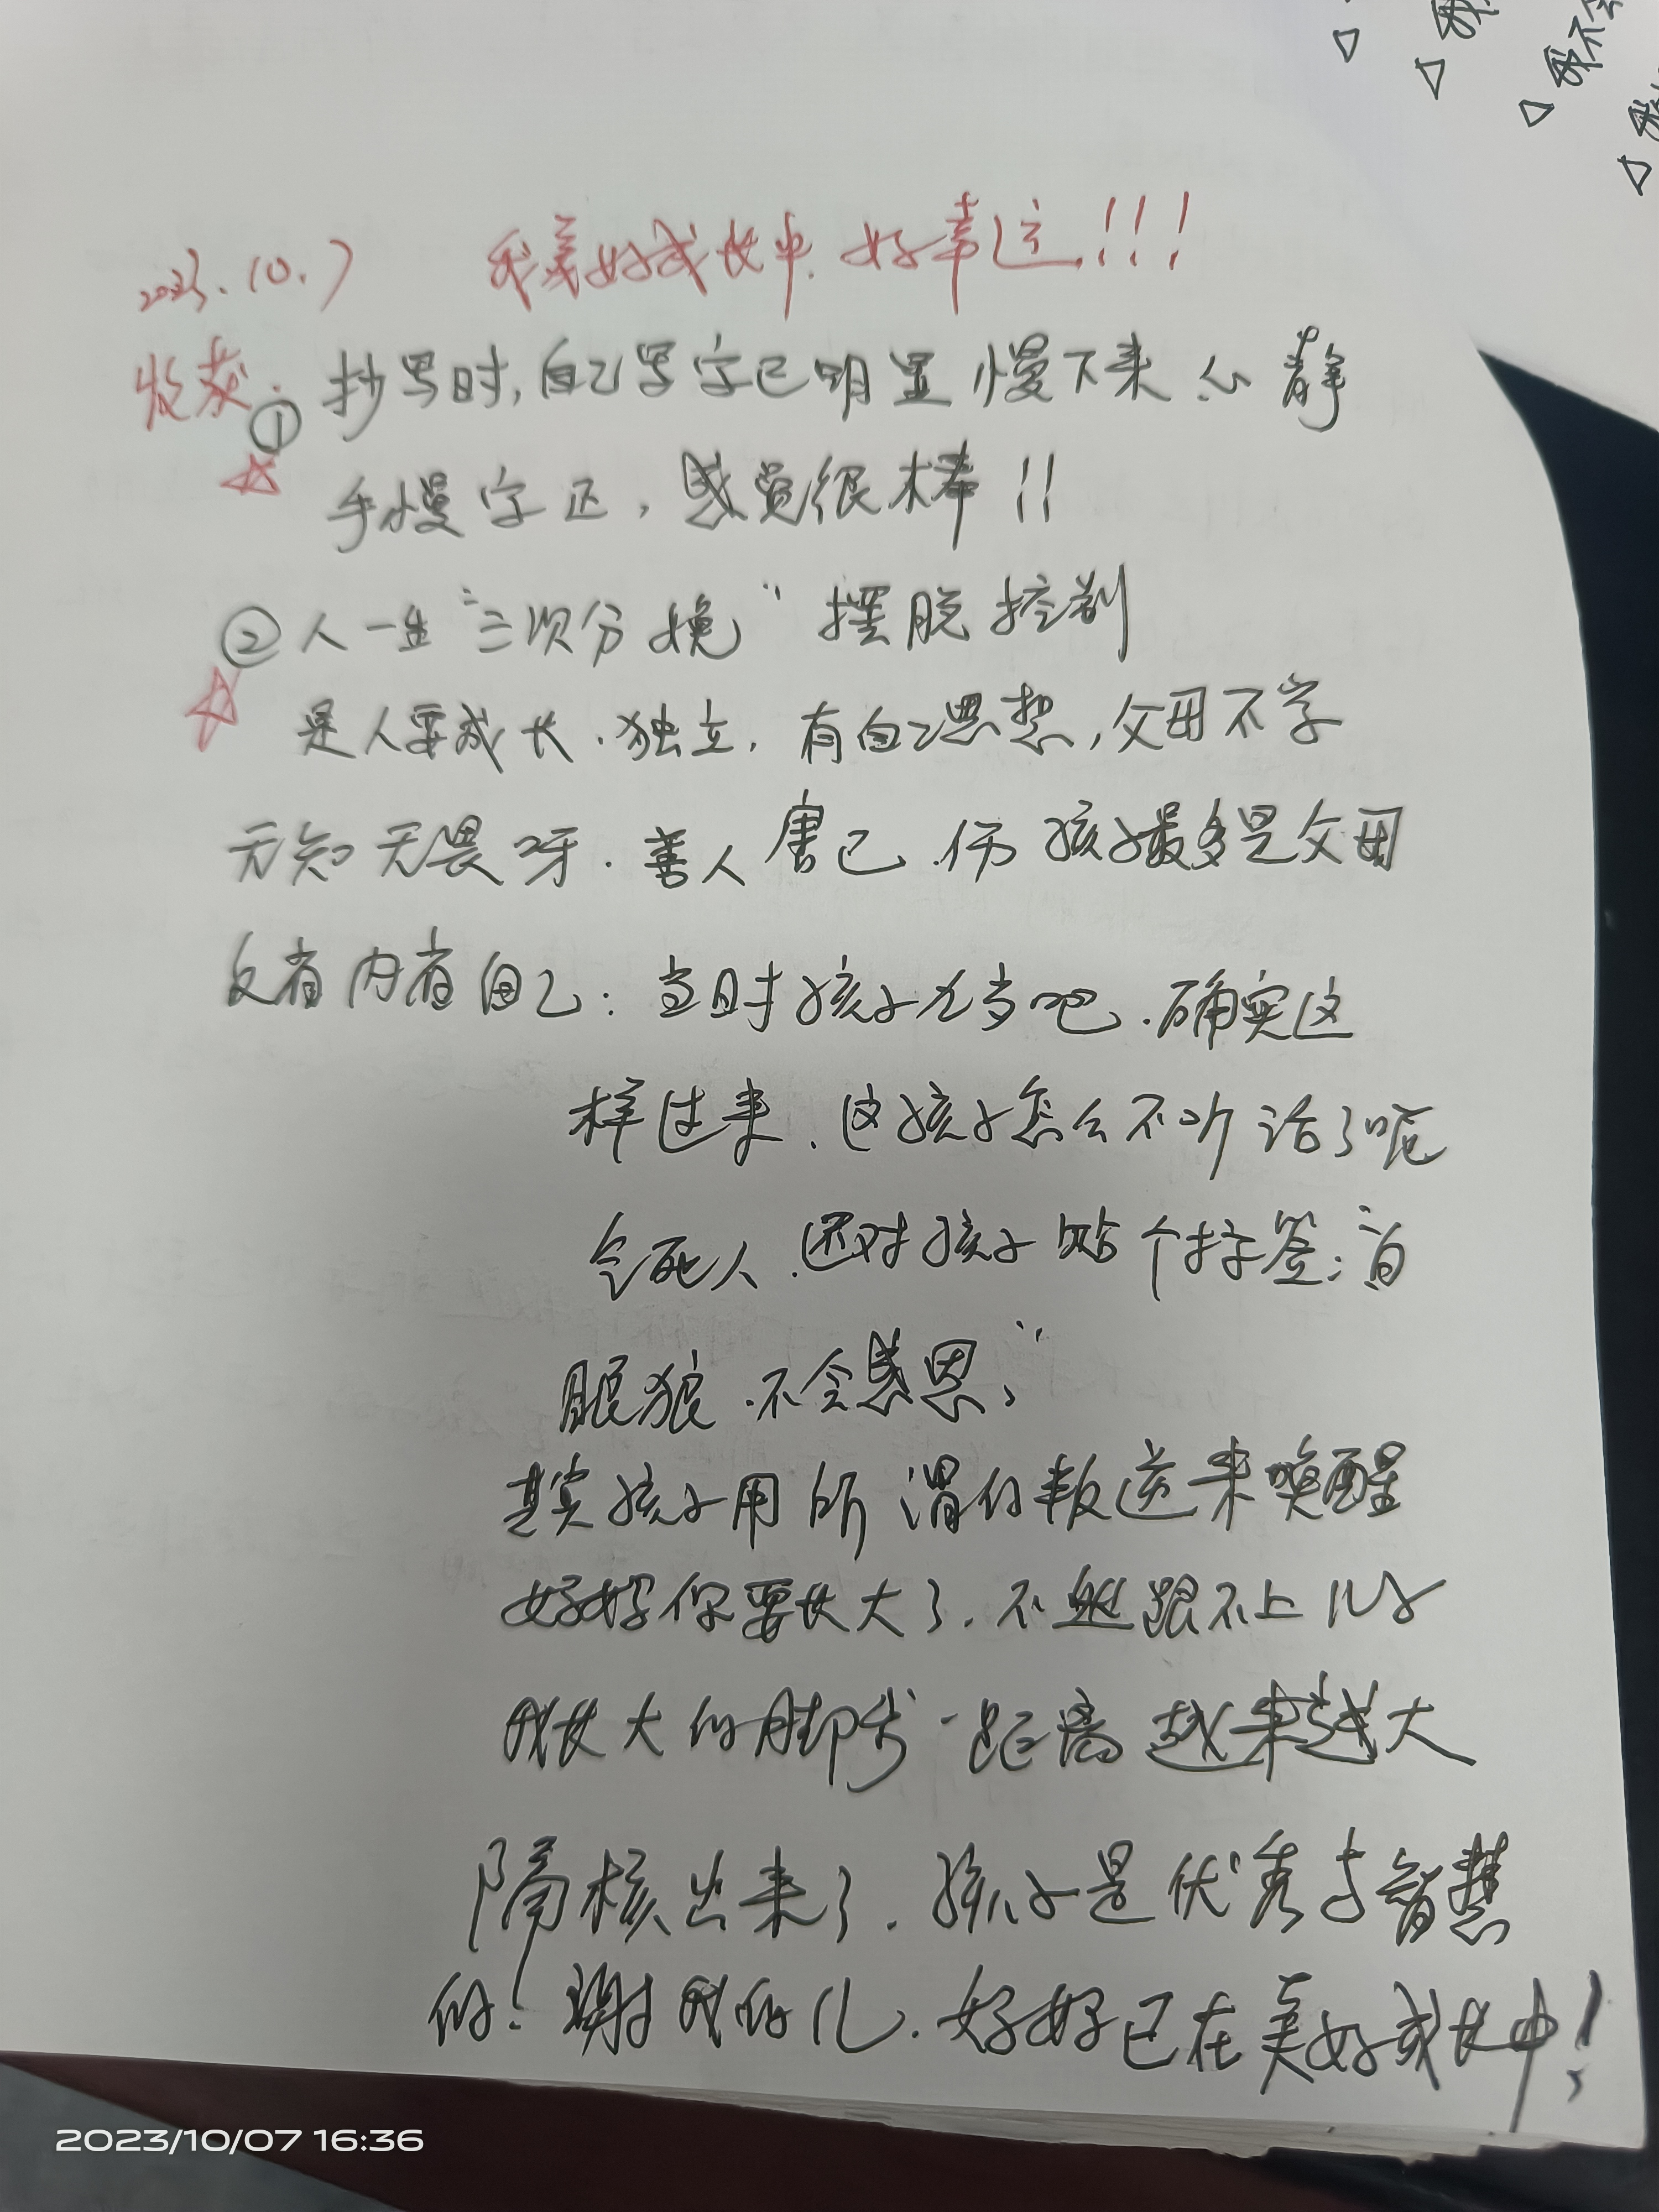 2023.10.7 我美好成长中.好幸运!!!
收获:① 抄写时,自己写字已明显慢下来 心静
手慢字正,感觉很棒!!
②人一生"三次分娩"摆脱控制
是人要成长.独立,有自己思想,父母不学
无知无畏呀.善人害己.伤孩子最多是父母
反省内省自己:当时孩子 吧.确实这
样过来.这孩子怎么不听话了呢
气死人.还对孩子贴个标签:"白
眼狼.不会感恩,"
其实孩子用所谓的叛逆来唤醒
好好你要长大了.不然跟不上儿子
成长大的脚步-距离越来越大
隔核出来了.孩子是优秀与智慧
的!谢我的儿.好好已在美好成长中!
2023/10/07 16:36